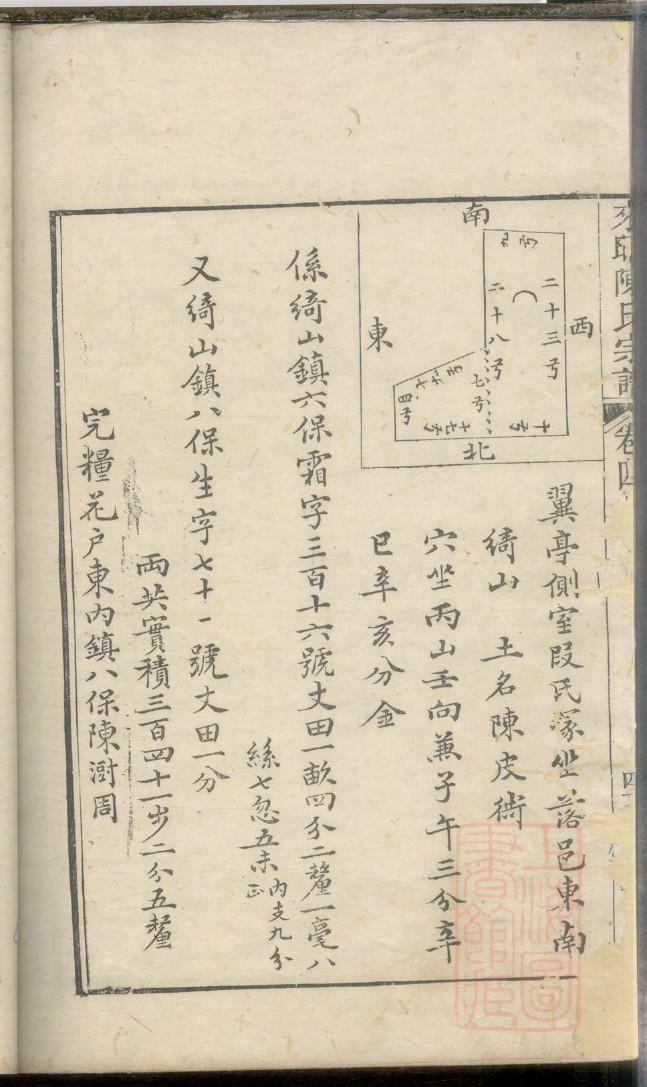 陳氏宗譜
卷四
南
西
東
北
二十三号
二十八号
七号
十号
翼亭側室段氏冡坐落邑東南
綺山　土名陳皮衖
穴坐丙山壬向兼子午三分辛
巳辛亥分金
係綺山鎮六保霜字三百十六號丈田一畝四分二釐一毫八
絲七忽五未內支九分
正
又綺山鎮八保生字七十一號丈田一分
兩共實積三百四十一步二分五釐
完糧花戶東內鎮八保陳澍周